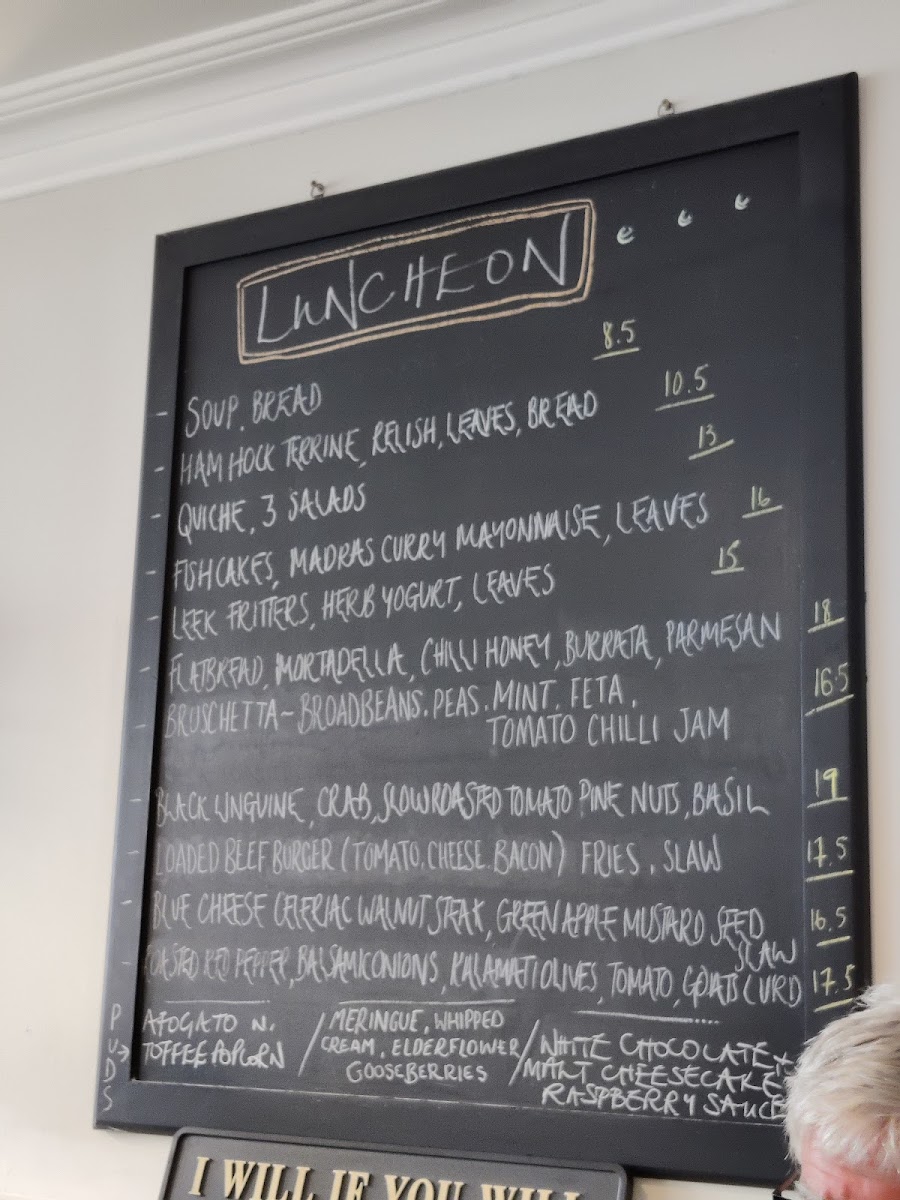 LUNCHEON
- SOUP. BREAD 8.5
- HAM HOCK TERRINE, RELISH, LEAVES, BREAD 10.5
- QUICHE, 3 SALADS 13
- FISHCAKES, MADRAS CURRY MAYONNAISE, LEAVES 16
- LEEK FRITTERS, HERB YOGURT, LEAVES 15
- FLATBREAD, MORTADELLA, CHILLI HONEY, BURRATA, PARMESAN 18
- BRUSCHETTA~ BROADBEANS. PEAS. MINT. FETA. 16.5
TOMATO CHILLI JAM
- BLACK LINGUINE, CRAB, SLOWROASTED TOMATO PINE NUTS, BASIL 19
- LOADED BEEF BURGER (TOMATO. CHEESE. BACON) FRIES. SLAW 17.5
- BLUE CHEESE CELERIAC WALNUT STEAK, GREEN APPLE MUSTARD SEED 16.5
SLAW
- ROASTED RED PEPPER, BALSAMIC ONIONS, KALAMATI OLIVES, TOMATO, GOATS CURD 17.5
PUDS →
AFOGATO N.
TOFFEE POPCORN
/ MERINGUE, WHIPPED
CREAM, ELDERFLOWER
GOOSEBERRIES
/ WHITE CHOCOLATE +
MALT CHEESECAKE
RASPBERRY SAUCE
I WILL IF YOU WILL